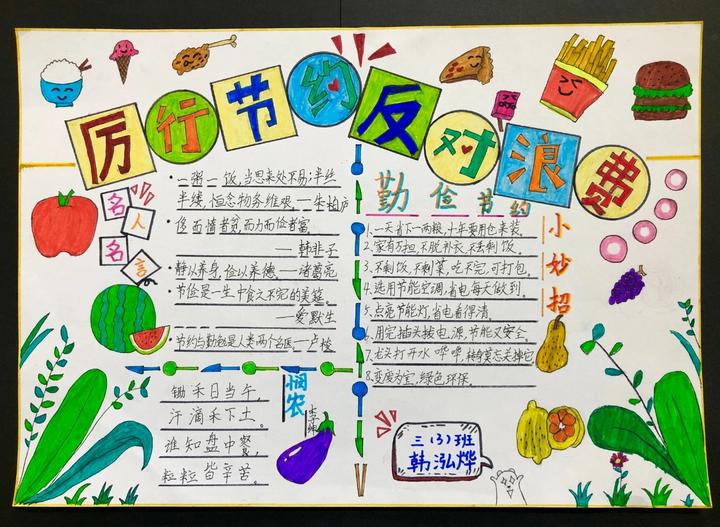 厉行节约反对浪费
名人名言
·一粥一饭,当思来处不易;半丝
半缕,恒念物力维艰。—朱柏庐
·侈而惰者贫,而力而俭者富。
—韩非子
静以养身,俭以养德—诸葛亮
·节俭是一生中食之不完的美筵。
—爱默生
节约与勤勉是人类两个名医—卢梭
悯农
李绅
锄禾日当午,
汗滴禾下土。
谁知盘中餐,
粒粒皆辛苦。
勤俭节约
小妙招
1.一天省下一两粮,十年要用仓来装。
2.家有万担,不脱补衣,不丢剩饭。
3.不剩饭,不剩菜,吃不完,可打包。
4.选用节能空调,省电每天做到。
5.点亮节能灯,省电看得清。
6.用完插头拔电源,节能又安全。
7.龙头打开水哗哗,转身莫忘关掉它
8.变废为宝,绿色环保。
三(3)班
韩泓烨